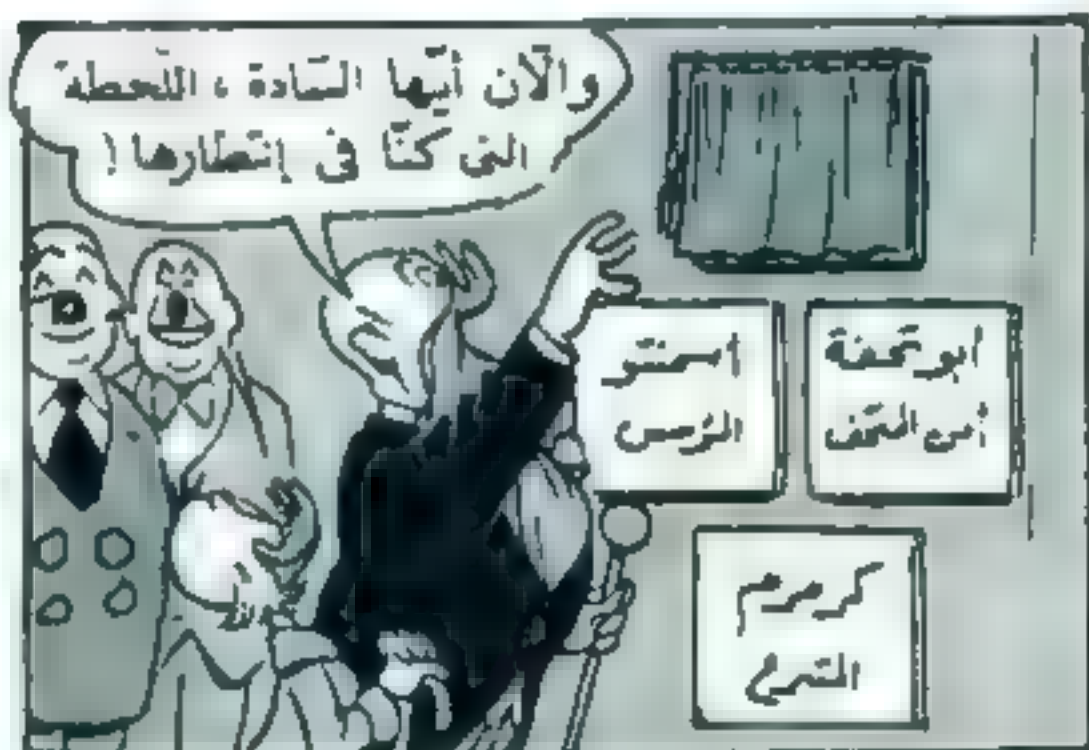 والآن أيّها السّادة ، اللّحظة
التي كنّا في إنتظارها !
ابو تحفة
أمين المتحف
اسمنتو
المؤسس
كرمرم
المتبرع